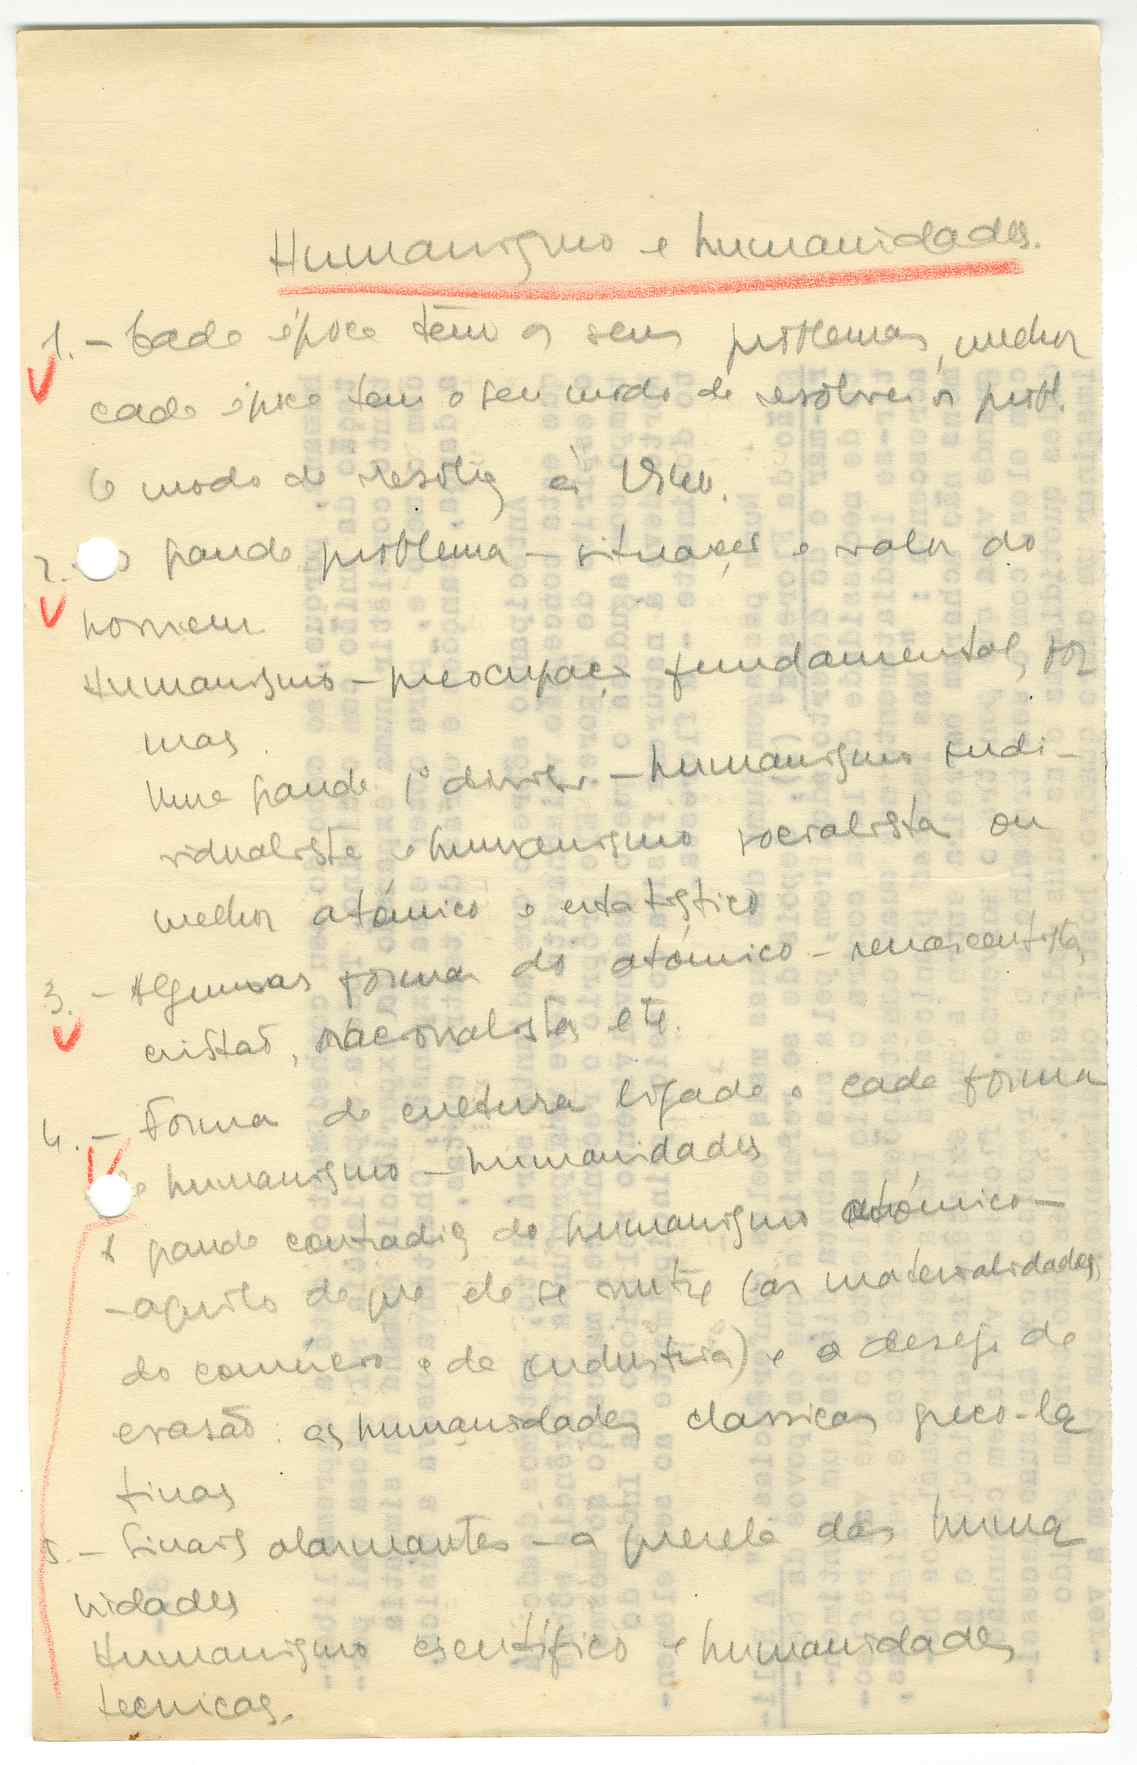 Humanismo e humanidades.
1. – Cada época tem os seus problemas, melhor
cada época tem o seu modo de resolver os probl.
O modo de resolver é
2. – O grande problema – situação e valor do
homem
Humanismo – preocupação fundamental, for
mas.
Uma grande 1ª divisão – humanismo indi-
vidualista e humanismo socialista ou
melhor atómico e estatístico
3. – Algumas formas do atómico – renascentista,
cristão, racionalista, etc.
4. – Forma de cultura ligada a cada forma
de humanismo – humanidades
A grande contradição do humanismo atómico –
– aquilo de que ele se nutre (as materialidades
do comércio e da indústria) e o desejo de
evasão: as humanidades classicas greco-la
tinas
5. – Sinais alarmantes – a querela das huma
nidades
Humanismo científico e humanidades
tecnicas.